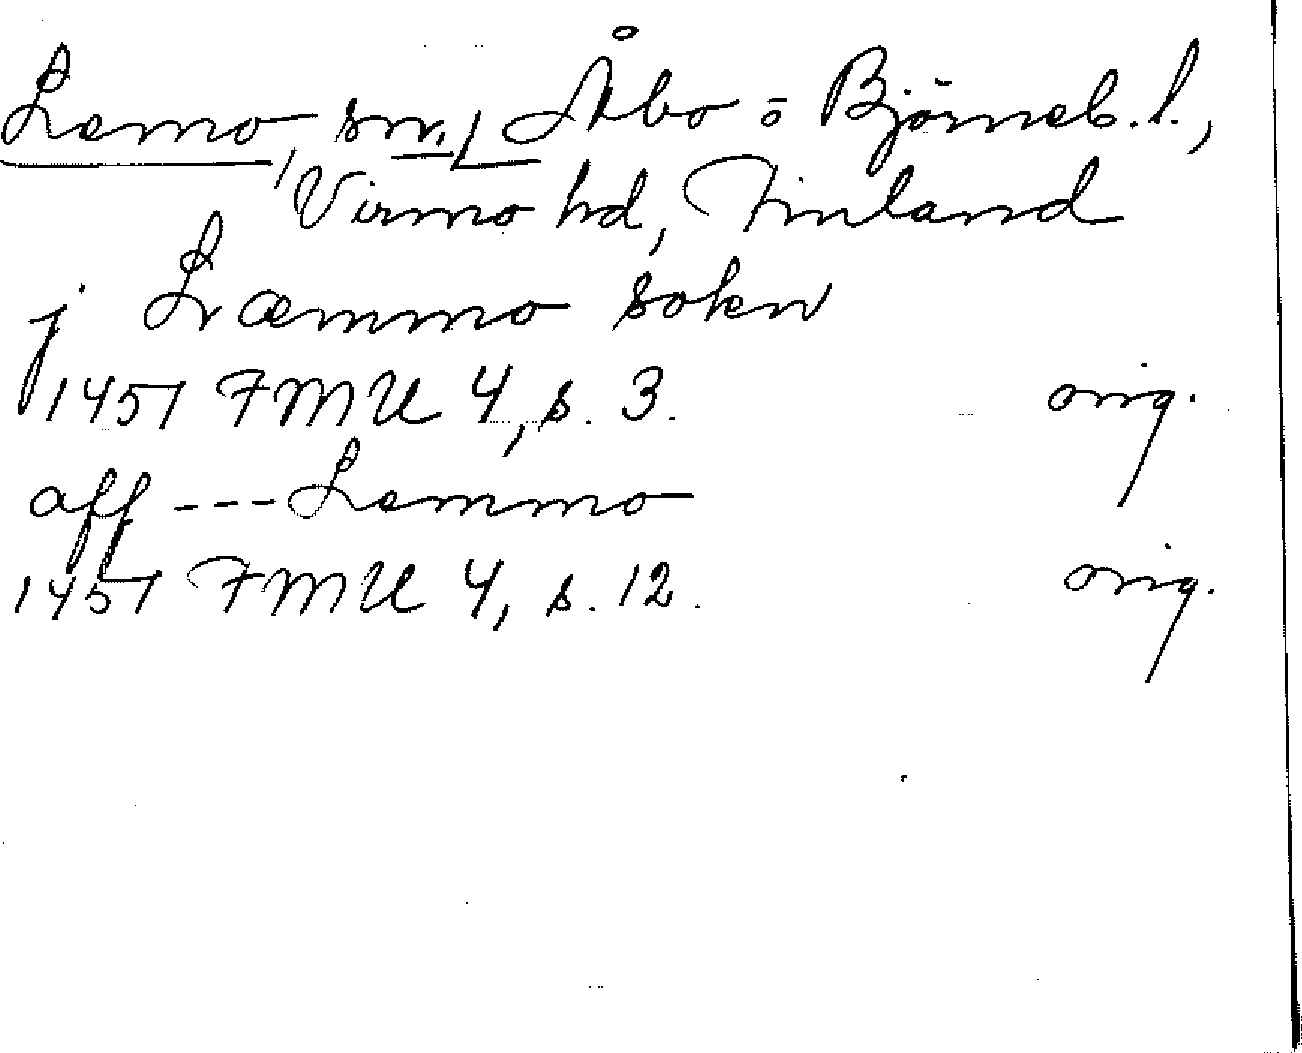 Lemo, sn., Åbo o Björneb. l.,
Virmo hd, Finland
j Læmmo sokn
1451 FMU 4, s. 3. orig.
aff --- Lemmo
1451 FMU 4, s. 12. orig.